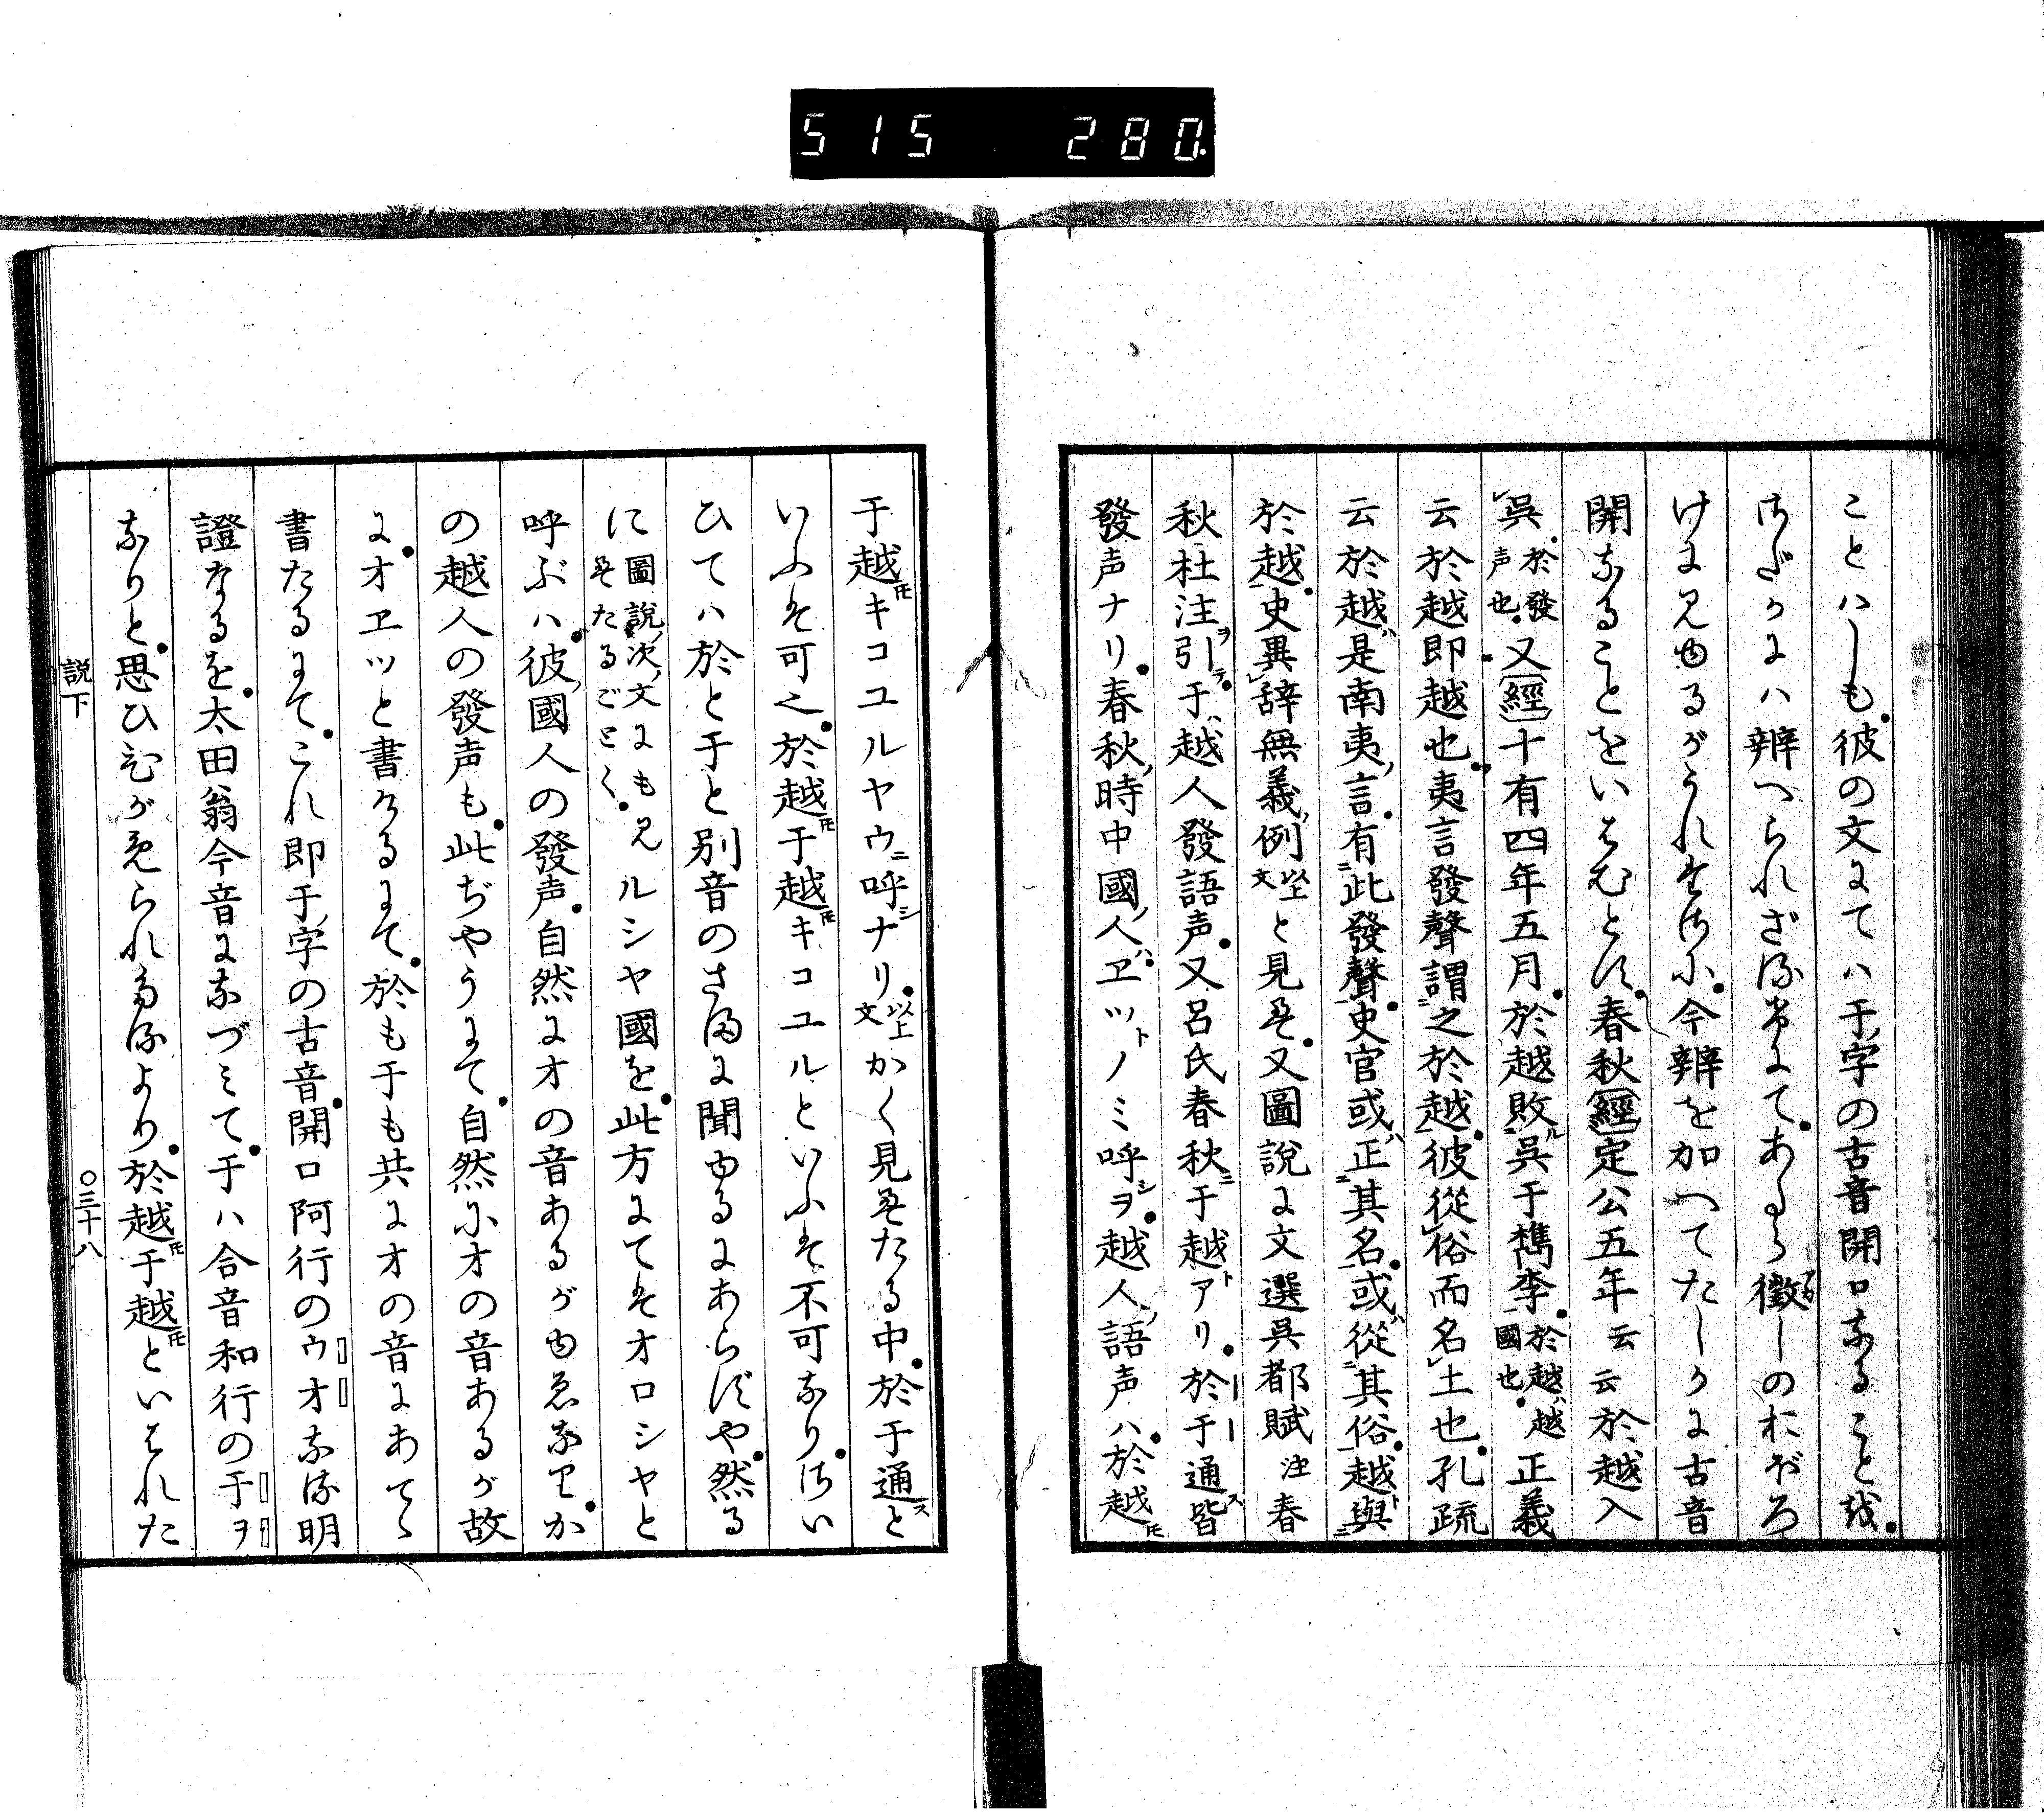 515 280
ことハしも彼の文にてハ于字の古音開口なることを
さだかにハ辨へられざる出にてあるを徴しのおぼろ
けに見ゆるがうれたさに今辨を加へてたしかに古音
開なることをいはむとす春秋經定公五年云云於越入
呉於發声也又經十有四年五月於越敗呉于檇李於越越國也正義
云於越即越也夷言發聲謂之於越彼從俗而名土也孔疏
云於越是南夷言有此發聲史官或正其名或從其俗越與
於越史異辞無義例以上文と見え又圖説に文選呉都賦注春
秋杜注ヲ引テ于ハ越人發語声又呂氏春秋ニ于越トアリ於于通ス皆
發声ナリ春秋時中國ノ人ハヱツトノミ呼シヲ越人ノ語声ハ於越トモ
于越トモキコユルヤウニ呼シナリ以上文かく見えたる中於于通スと
いふハ可之於越トモ于越トモキコユルといふハ不可なりさい
ひてハ於と于と別音のさまに聞ゆるにあらずや然る
に圖説ノ次ノ文にも見えたるごとくルシヤ國を此方にてハオロシヤと
呼ぶハ彼ノ國人の發声自然にオの音あるがゆゑなりか
の越人の發声も此ぢやうにて自然にオの音あるが故
にオヱツと書けるにて於も于も共にオの音にあてゝ
書たるにてこれ即于ノ字の古音開口阿行のウオなる明
證なるを太田翁今音になづミて于ハ合音和行の于ヲ
なりと思ひひがめられたるより於越トモ于越トモといはれた
説下
〇三十八